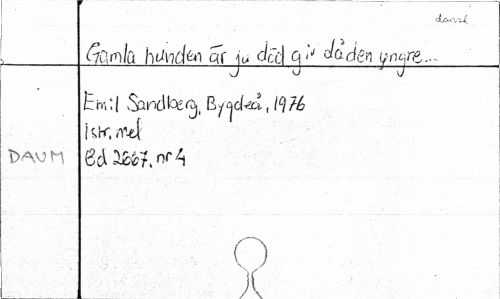 dansk
Gamla hunden är ju död, giv då den yngre...
Emil Sandberg, Bygdeå, 1976
1 str, mel
DAUM Bd 2667, nr 4